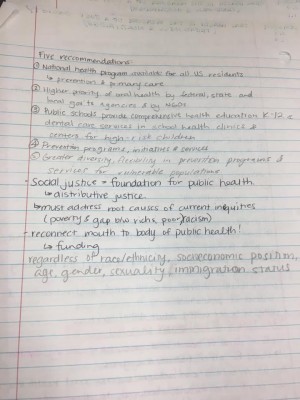 Five recommendations:
① National health program available for all US residents
↳ prevention & primary care
② Higher priority of oral health by federal, state and
local gov to agencies & by NGOs
③ Public schools provide comprehensive health education K-12 &
dental care services in school health clinics &
centers for high-risk children
④ Prevention programs, initiatives & services
⑤ Greater diversity, flexibility in prevention programs &
services for vulnerable populations
- Social justice = foundation for public health
↳ distributive justice
↳ must address root causes of current inequities
(poverty & gap b/w rich, poor, racism)
- reconnect mouth to body of public health!
↳ funding
regardless of race/ethnicity, socioeconomic position,
age, gender, sexuality, immigration status